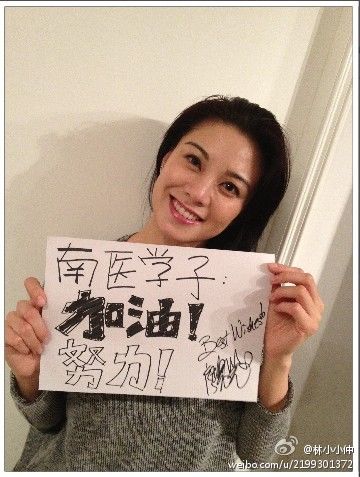 南医学子：
加油！
努力！
Best Wishes
@林小小仲
weibo.com/u/2199301372